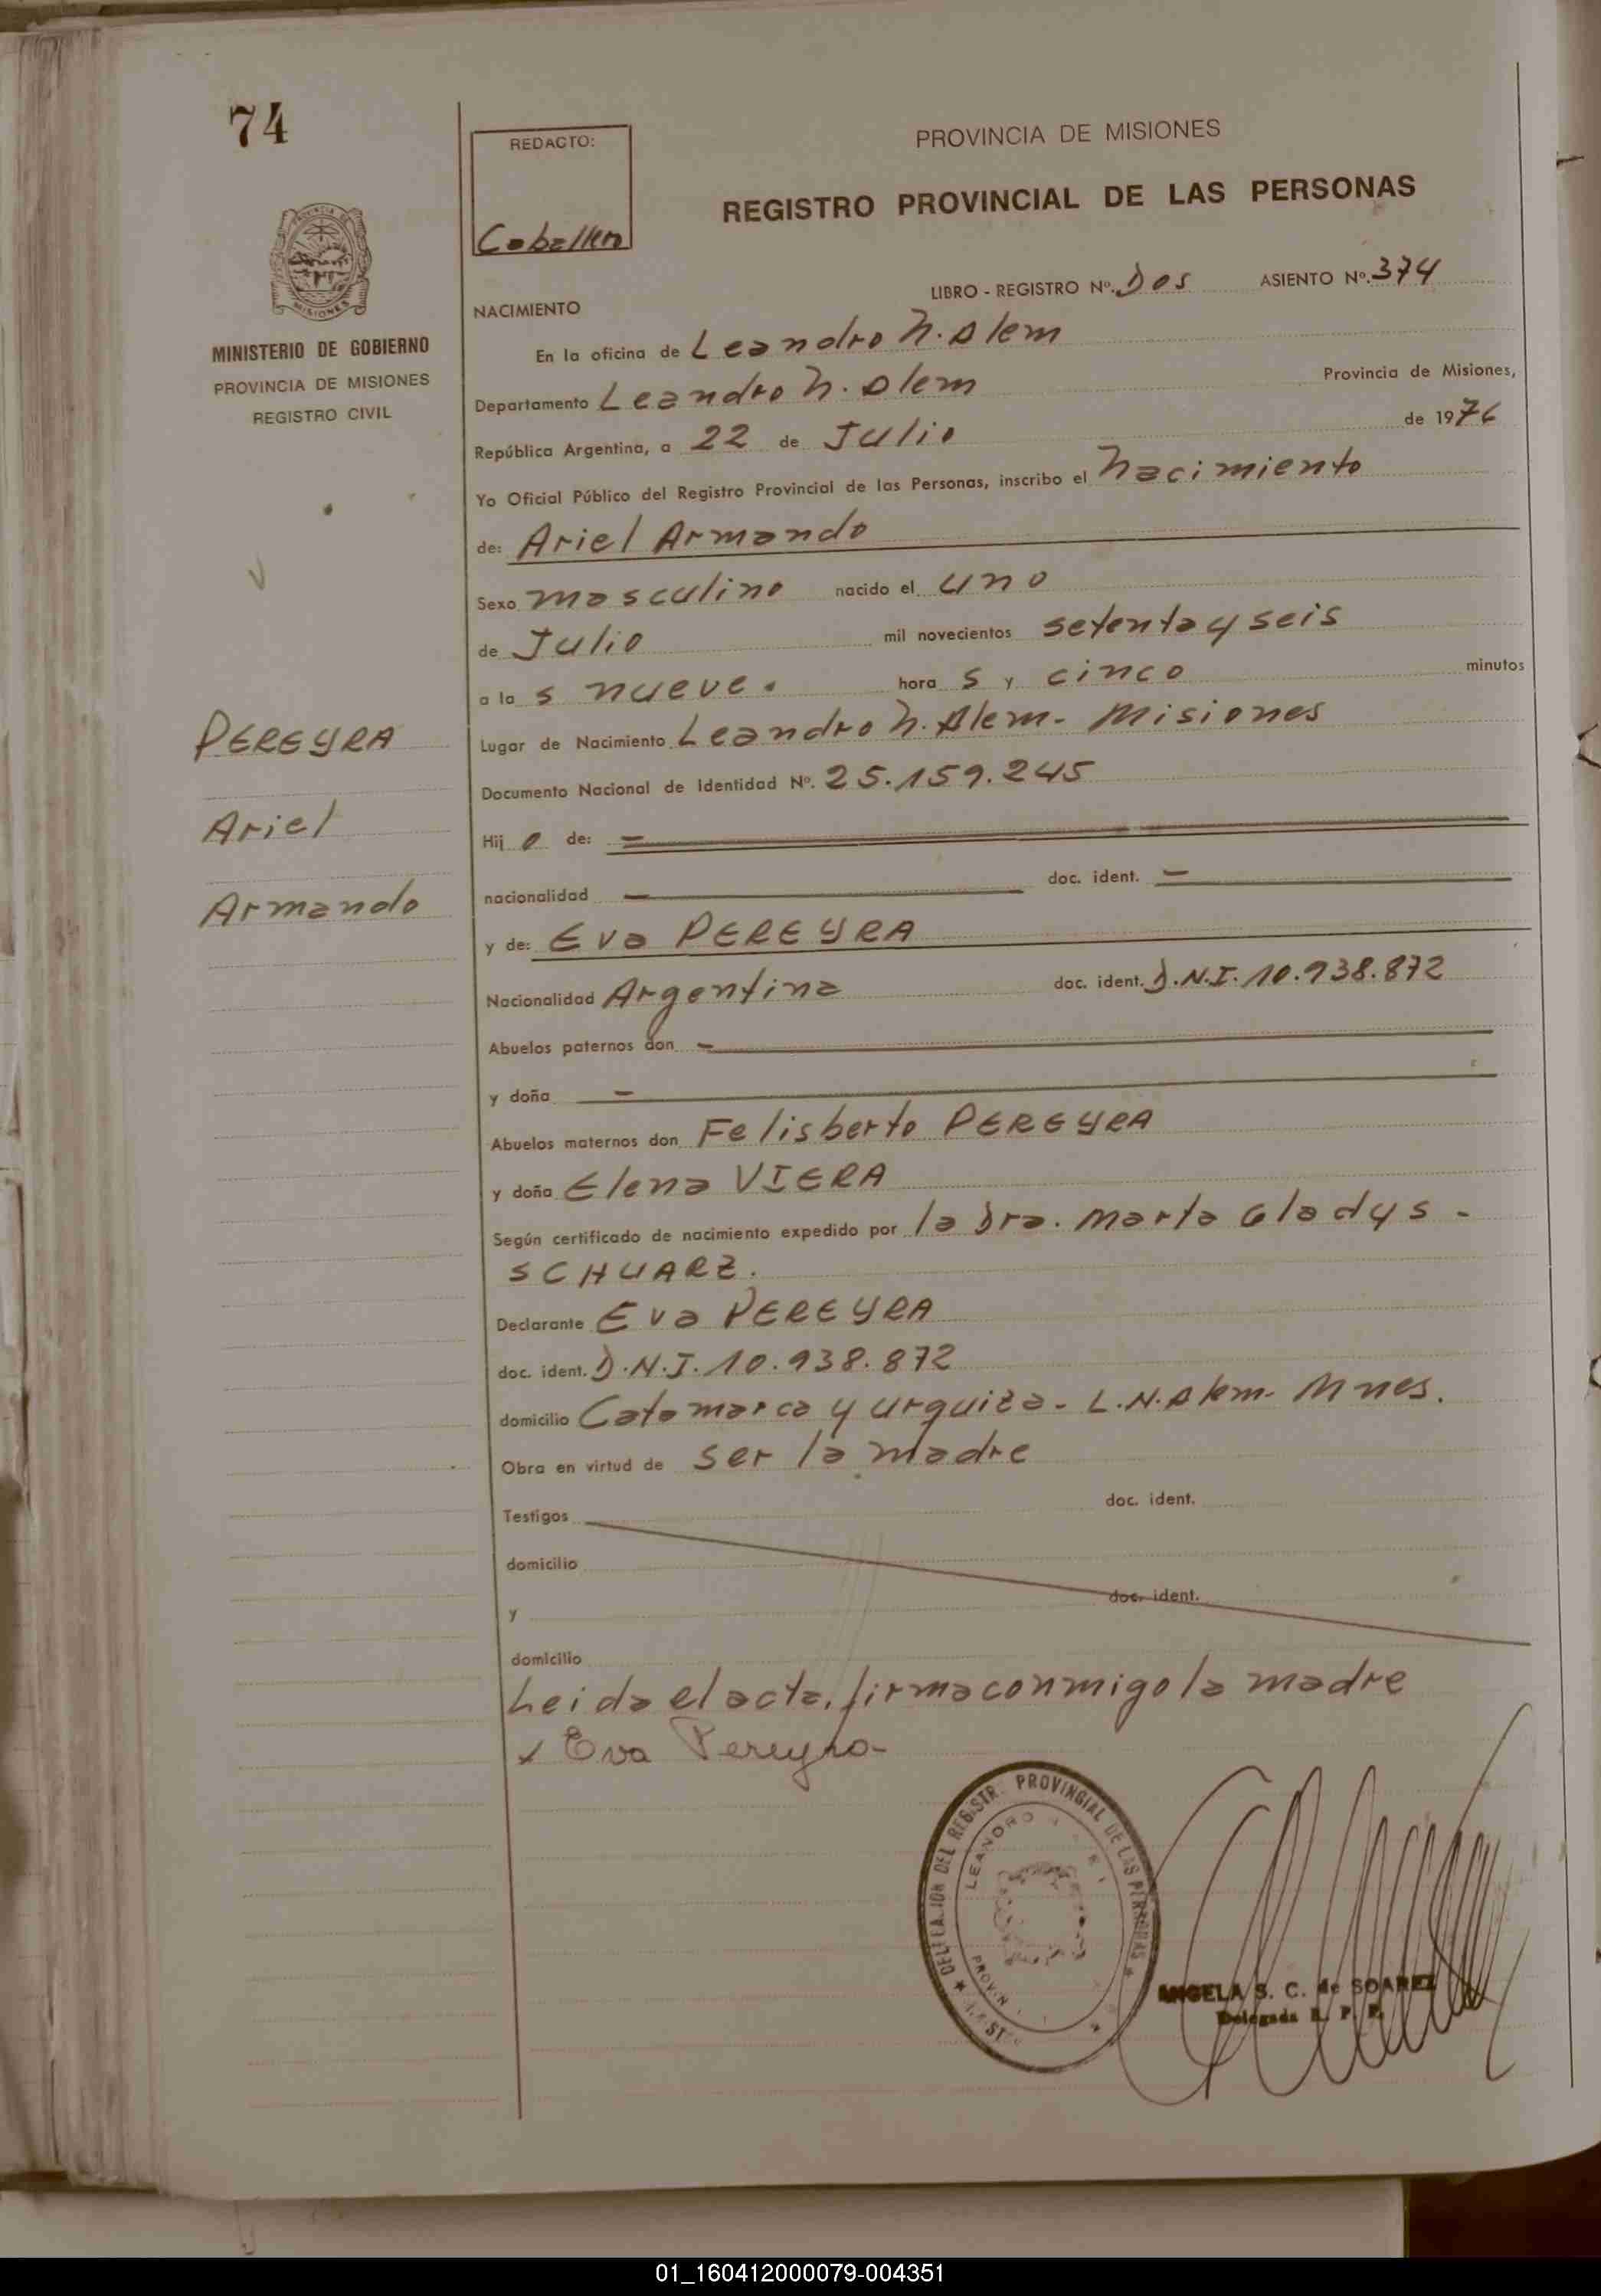 74
REDACTO:
Caballero
PROVINCIA DE MISIONES
REGISTRO PROVINCIAL DE LAS PERSONAS
MINISTERIO DE GOBIERNO
PROVINCIA DE MISIONES
REGISTRO CIVIL
LIBRO - REGISTRO Nº. Dos ASIENTO Nº. 374
NACIMIENTO
En la oficina de Leandro N. Alem
Departamento Leandro N. Alem Provincia de Misiones,
República Argentina, a 22 de Julio de 1976
Yo Oficial Público del Registro Provincial de las Personas, inscribo el nacimiento
de: Ariel Armando
Sexo masculino nacido el uno
de Julio mil novecientos setenta y seis
a la s nueve. hora s y cinco minutos
Lugar de Nacimiento Leandro N. Alem - Misiones
Documento Nacional de Identidad Nº. 25.159.245
PEREYRA
Ariel
Armando
Hij o de: —
nacionalidad — doc. ident. —
y de: Eva PEREYRA
Nacionalidad Argentina doc. ident. D.N.I. 10.938.872
Abuelos paternos don —
y doña —
Abuelos maternos don Felisberto PEREYRA
y doña Elena VIERA
Según certificado de nacimiento expedido por la Dra. Marta Gladys -
SCHUARZ.
Declarante Eva PEREYRA
doc. ident. D.N.I. 10.938.872
domicilio Catamarca y Urquiza - L.N. Alem - Mnes.
Obra en virtud de ser la madre
Testigos doc. ident.
domicilio
y doc. ident.
domicilio
Leida el acta, firma conmigo la madre
x Eva Pereyra-
PROVINCIAL DE LAS PERSONAS
LEANDRO
ANGELA S. C. de SOAREZ
Delegada R. P. P.
01_160412000079-004351